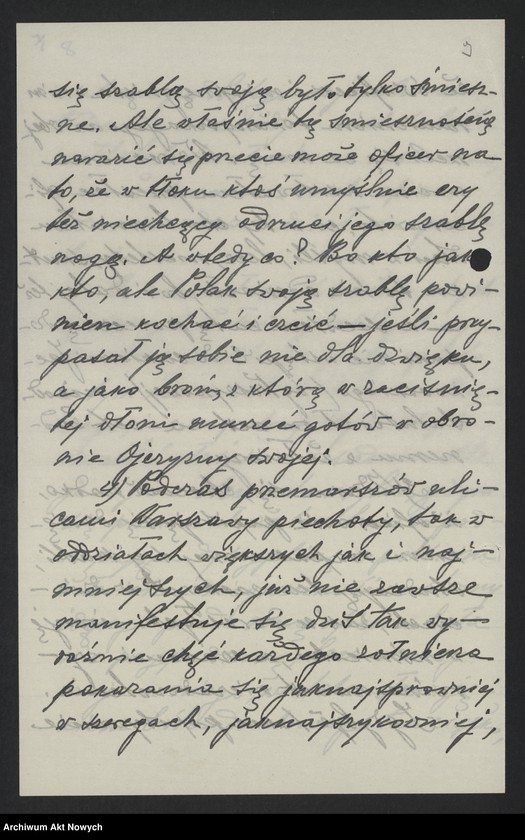 się szablą swoją było tylko śmiesz-
ne. Ale właśnie tą śmiesznością
narazić się przecie może oficer na
to, że w tłoku ktoś umyślnie czy
też niechcący odrzuci jego szablę
nogą. A wtedy co? Bo kto jak
kto, ale Polak swoją szablę powi-
nien kochać i czcić — jeśli przy-
pasał ją sobie nie dla dźwięku,
a jako broń, z którą w zaciśnię-
tej dłoni umrzeć gotów w obro-
nie Ojczyzny swojej.
4) Podczas przemarszów uli-
cami Warszawy piechoty, tak w
oddziałach większych jak i naj-
mniejszych, już nie zawsze
manifestuje się dziś tak wy-
raźnie chęć każdego żołnierza
pokazania się jaknajsprawniej
w szeregach, jaknajszykowniej,
Archiwum Akt Nowych